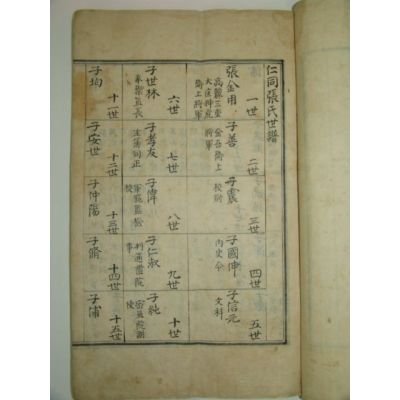 仁同張氏世譜
一世
二世
三世
四世
五世
張金用
高麗三重
大匡神虎
衛上將軍
子善
金吾衛上
將軍
子震
校尉
子國伸
內史令
子信元
文科
六世
七世
八世
九世
十世
子世林
直長
子孝友
同正
子偉
校
子仁淑
判通禮院
事
子純
十一世
十二世
十三世
十四世
十五世
子均
子安世
子仲陽
子脩
子俌